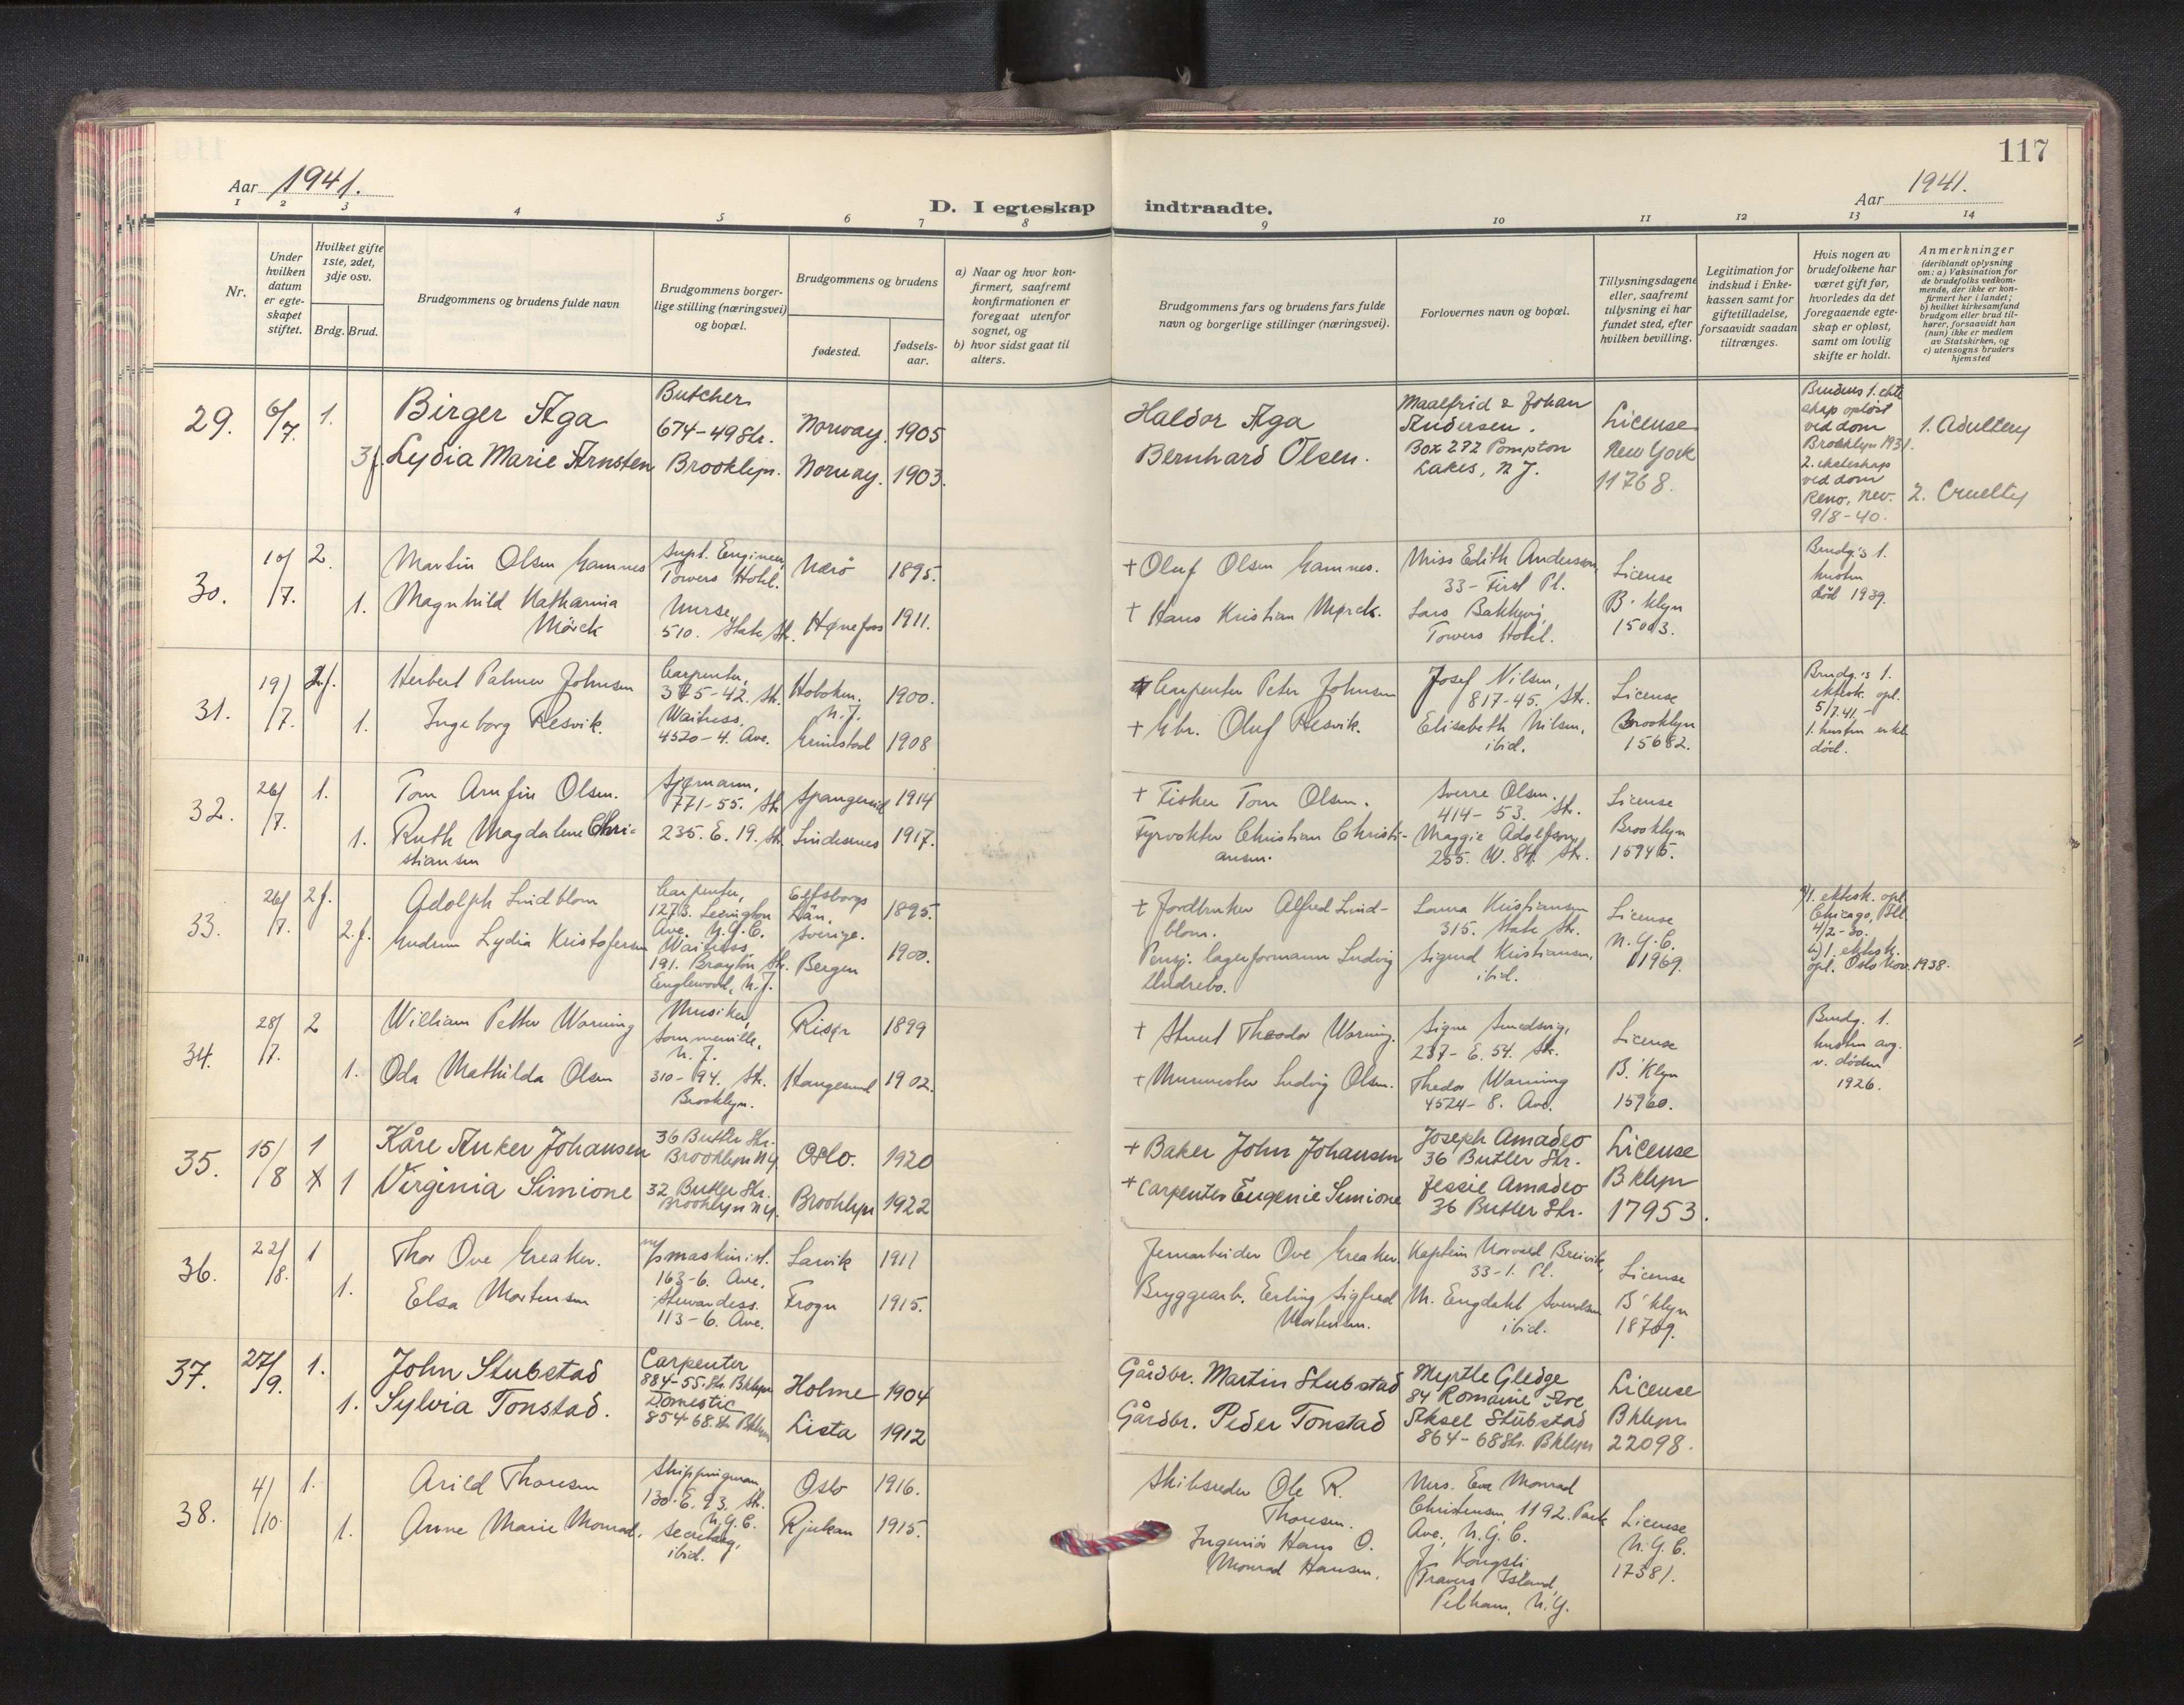 117
Aar 1941.
Aar 1941.
D. I egteskap indtraadte.
1 2 3 4 5 6 7 8 9 10 11 12 13 14
Nr.
Under hvilken datum er egte- skapet stiftet.
Hvilket gifte 1ste, 2det, 3dje osv.
Brdg. Brud.
Brudgommens og brudens fulde navn
Brudgommens borger- lige stilling (næringsvei) og bopæl.
Brudgommens og brudens
fødested.
fødsels- aar.
a) Naar og hvor kon- firmert, saafremt konfirmationen er foregaat utenfor sognet, og
b) hvor sidst gaat til alters.
Brudgommens fars og brudens fars fulde navn og borgerlige stillinger (næringsvei).
Forlovernes navn og bopæl.
Tillysningsdagene eller, saafremt tillysning ei har fundet sted, efter hvilken bevilling.
Legitimation for indskud i Enke- kassen samt for giftetilladelse, forsaavidt saadan tiltrænges.
Hvis nogen av brudefolkene har været gift før, hvorledes da det foregaaende egte- skap er opløst, samt om lovlig skifte er holdt.
Anmerkninger
(deriblandt oplysning om: a) Vaksination for de brudefolks vedkom- mende, der ikke er kon- firmert her i landet; b) hvilket kirkesamfund brudgom eller brud til- hører, forsaavidt han (hun) ikke er medlem av Statskirken, og c) utensogns bruders hjemsted
29. 6/7. 1. Birger Aga Butcher 674-49 Str. Norway. 1905 Haldor Aga Maalfrid & Johan Andersen. License
3f. Lydia Marie Arnsten Brooklyn. Norway. 1903. Bernhard Olsen. Box 272 Pompton Lakes, N J. New York 11768.
Brudens 1. ekteskap opløst ved dom Brooklyn 1931.
2. ekteskap ved dom Reno, Nev. 9/8-40.
1. Adultery
2. Cruelty
30. 10/7. 2. Martin Olsen Gamnes Supt. Engineer, Towers Hotel. Nærø 1895. + Oluf Olsen Gamnes. Miss Edith Anderson 33-First Pl. License
1. Magnhild Katharina Mörck Nurse, 510. State Str. Hønefoss 1911. + Hans Kristian Mørck. Lars Bakkevig, Towers Hotel. B'klyn 15003.
Brudg's 1. hustru død 1939.
31. 19/7. 2f. Herbert Palmer Johnsen Carpenter, 375-42. Str. Hoboken. N.J. 1900. Carpenter Peter Johnsen Josef Nilsen, 817-45. Str. License
1. Ingeborg Resvik. Waitress, 4520-4. Ave. Grimstad 1908 + Gbr. Oluf Resvik. Elisabeth Nilsen, ibid. Brooklyn 15682.
Brudg.'s 1. ektesk. opl. 5/7.41.- 1. hustru erkl. død.
32. 26/7. 1. Tom Arnfin Olsen. Sjømann, 771-55. Str. Spangereid 1914 + Fisker Tom Olsen. Sverre Olsen. 414-53. Str. License
1. Ruth Magdalene Christiansen 235. E. 19. Str. Lindesnes 1917. Fyrvokter Christian Christiansen. Maggie Adolfsen, 255. W. 84. Str. Brooklyn 15945.
33. 26/7. 2f. Adolph Lindblom Carpenter, 1273. Lexington Ave. N.Y.C. Elfsborgs Län, Sverige. 1895. + Jordbruker Alfred Lindblom. Laura Kristiansen 315. State Str. License
2.f. Gudrun Lydia Kristofersen Waitress 191. Brayton Str. Englewood, N.J. Bergen 1900. Pensj. lagerformann Ludvig Undrebo. Sigurd Kristiansen, ibid. N.Y.C. 11969.
1. ektesk. opl. Chicago, Ill. 4/2-30.
1. ektesk. opl. Oslo Nov. 1938.
34. 28/7. 2 William Petter Warning Musiker, Sommerville, N.J. Risør 1899 + Stuert Theodor Warning. Signe Smedsvig, 237-E. 54. Str. License
1. Oda Mathilda Olsen 310-94. Str. Brooklyn. Haugesund 1902. + Murmester Ludvig Olsen. Thedor Warning 4524-8. Ave. B'Klyn 15960.
Brudg. 1. hustru avg. v. døden 1926.
35. 15/8 1 Kåre Anker Johansen 36 Butler Str. Brooklyn NY. Oslo. 1920 + Baker John Johansen Joseph Amadeo 36 Butler Str. License
1 Virginia Simione 32 Butler Str. Brooklyn NY. Brooklyn 1922 + Carpenter Eugenie Simione Jessie Amadeo 36 Butler Str. Bklyn 17953.
36. 22/8. 1 Thor Ove Greaker. maskinist. 163-6. Ave. Larvik 1911 Jernarbeider Ove Greaker. Kaptein Norvald Breivik, 33-1. Pl. License
1. Elsa Mortensen Stewardess. 113-6. Ave. Frogn 1915. Bryggearb. Erling Sigfred Mortensen. M. Engdahl Svendsen ibid. B'klyn 18709.
37. 27/9. 1. John Stubstad Carpenter 884-55. Str. Bklyn Holme 1904 Gårdbr. Martin Stubstad Myrtle Gledge 84 Romaine Ave License
1. Sylvia Tonstad. Domestic 854-68. Str Bklyn Lista 1912 Gårdbr. Peder Tonstad Aksel Stubstad 864-68 Str. Bklyn Bklyn 22098.
38. 4/10. 1. Arild Thoresen Shippingman 130-E. 93. Str. N.Y.C. Oslo 1916. Skibsreder Ole R. Thoresen. Mrs. Eva Monrad Christensen, 1192. Park Ave., N.Y.C. License
1. Anne Marie Monrad. Secretary, ibid. Rjukan 1915. Ingeniør Hans O. Monrad Hansen. J. Kongsli Travers Island, Pelham, N.Y. N.Y.C. 17381.